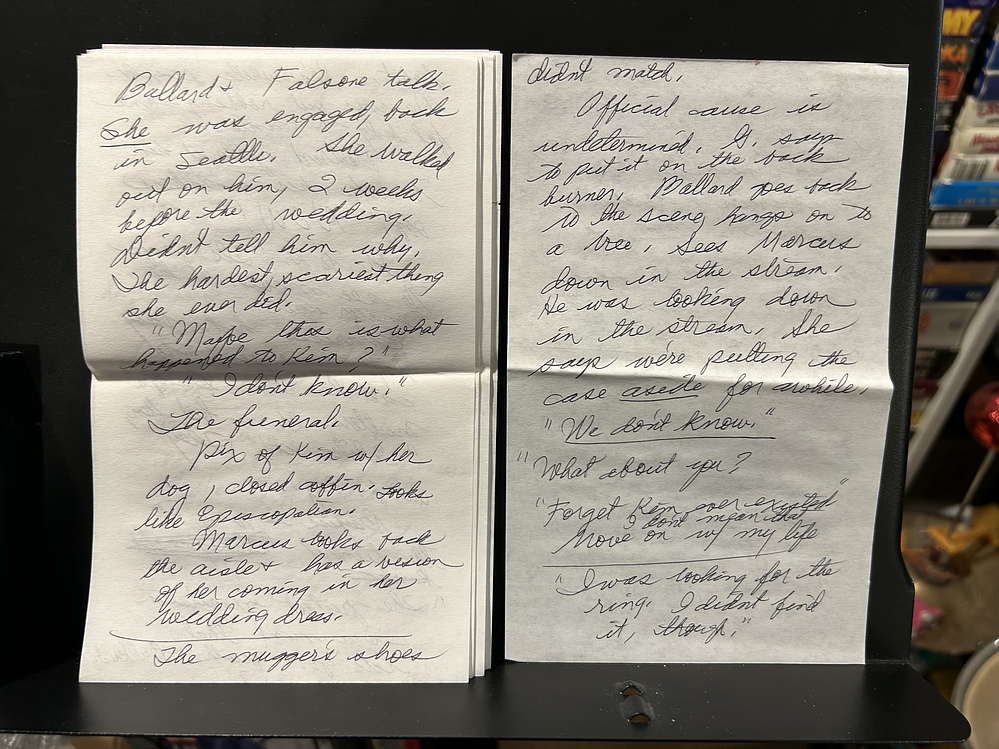 Ballard + Falsone talk.
She was engaged, back
in Seattle. She walked
out on him, 2 weeks
before the wedding.
Didn't tell him why.
The hardest, scariest thing
she ever did.
"Maybe this is what
happened to Kim?"
"I don't know."
The funeral.
Pix of Kim w/ her
dog, closed coffin. Looks
like Episcopalian.
Marcus looks back
the aisle + has a vision
of her coming in her
wedding dress.
The mugger's shoes
didnt match.
Official cause is
undetermined. G. says
to put it on the back
burner. Ballard goes back
to the scene, hangs on to
a tree, sees Marcus
down in the stream.
He was looking down
in the stream. She
says we're putting the
case aside for awhile.
"We don't know."
"What about you?
"Forget Kim ever existed"
I don't mean that
Move on w/ my life
"I was looking for the
ring. I didn't find
it, though."
MY